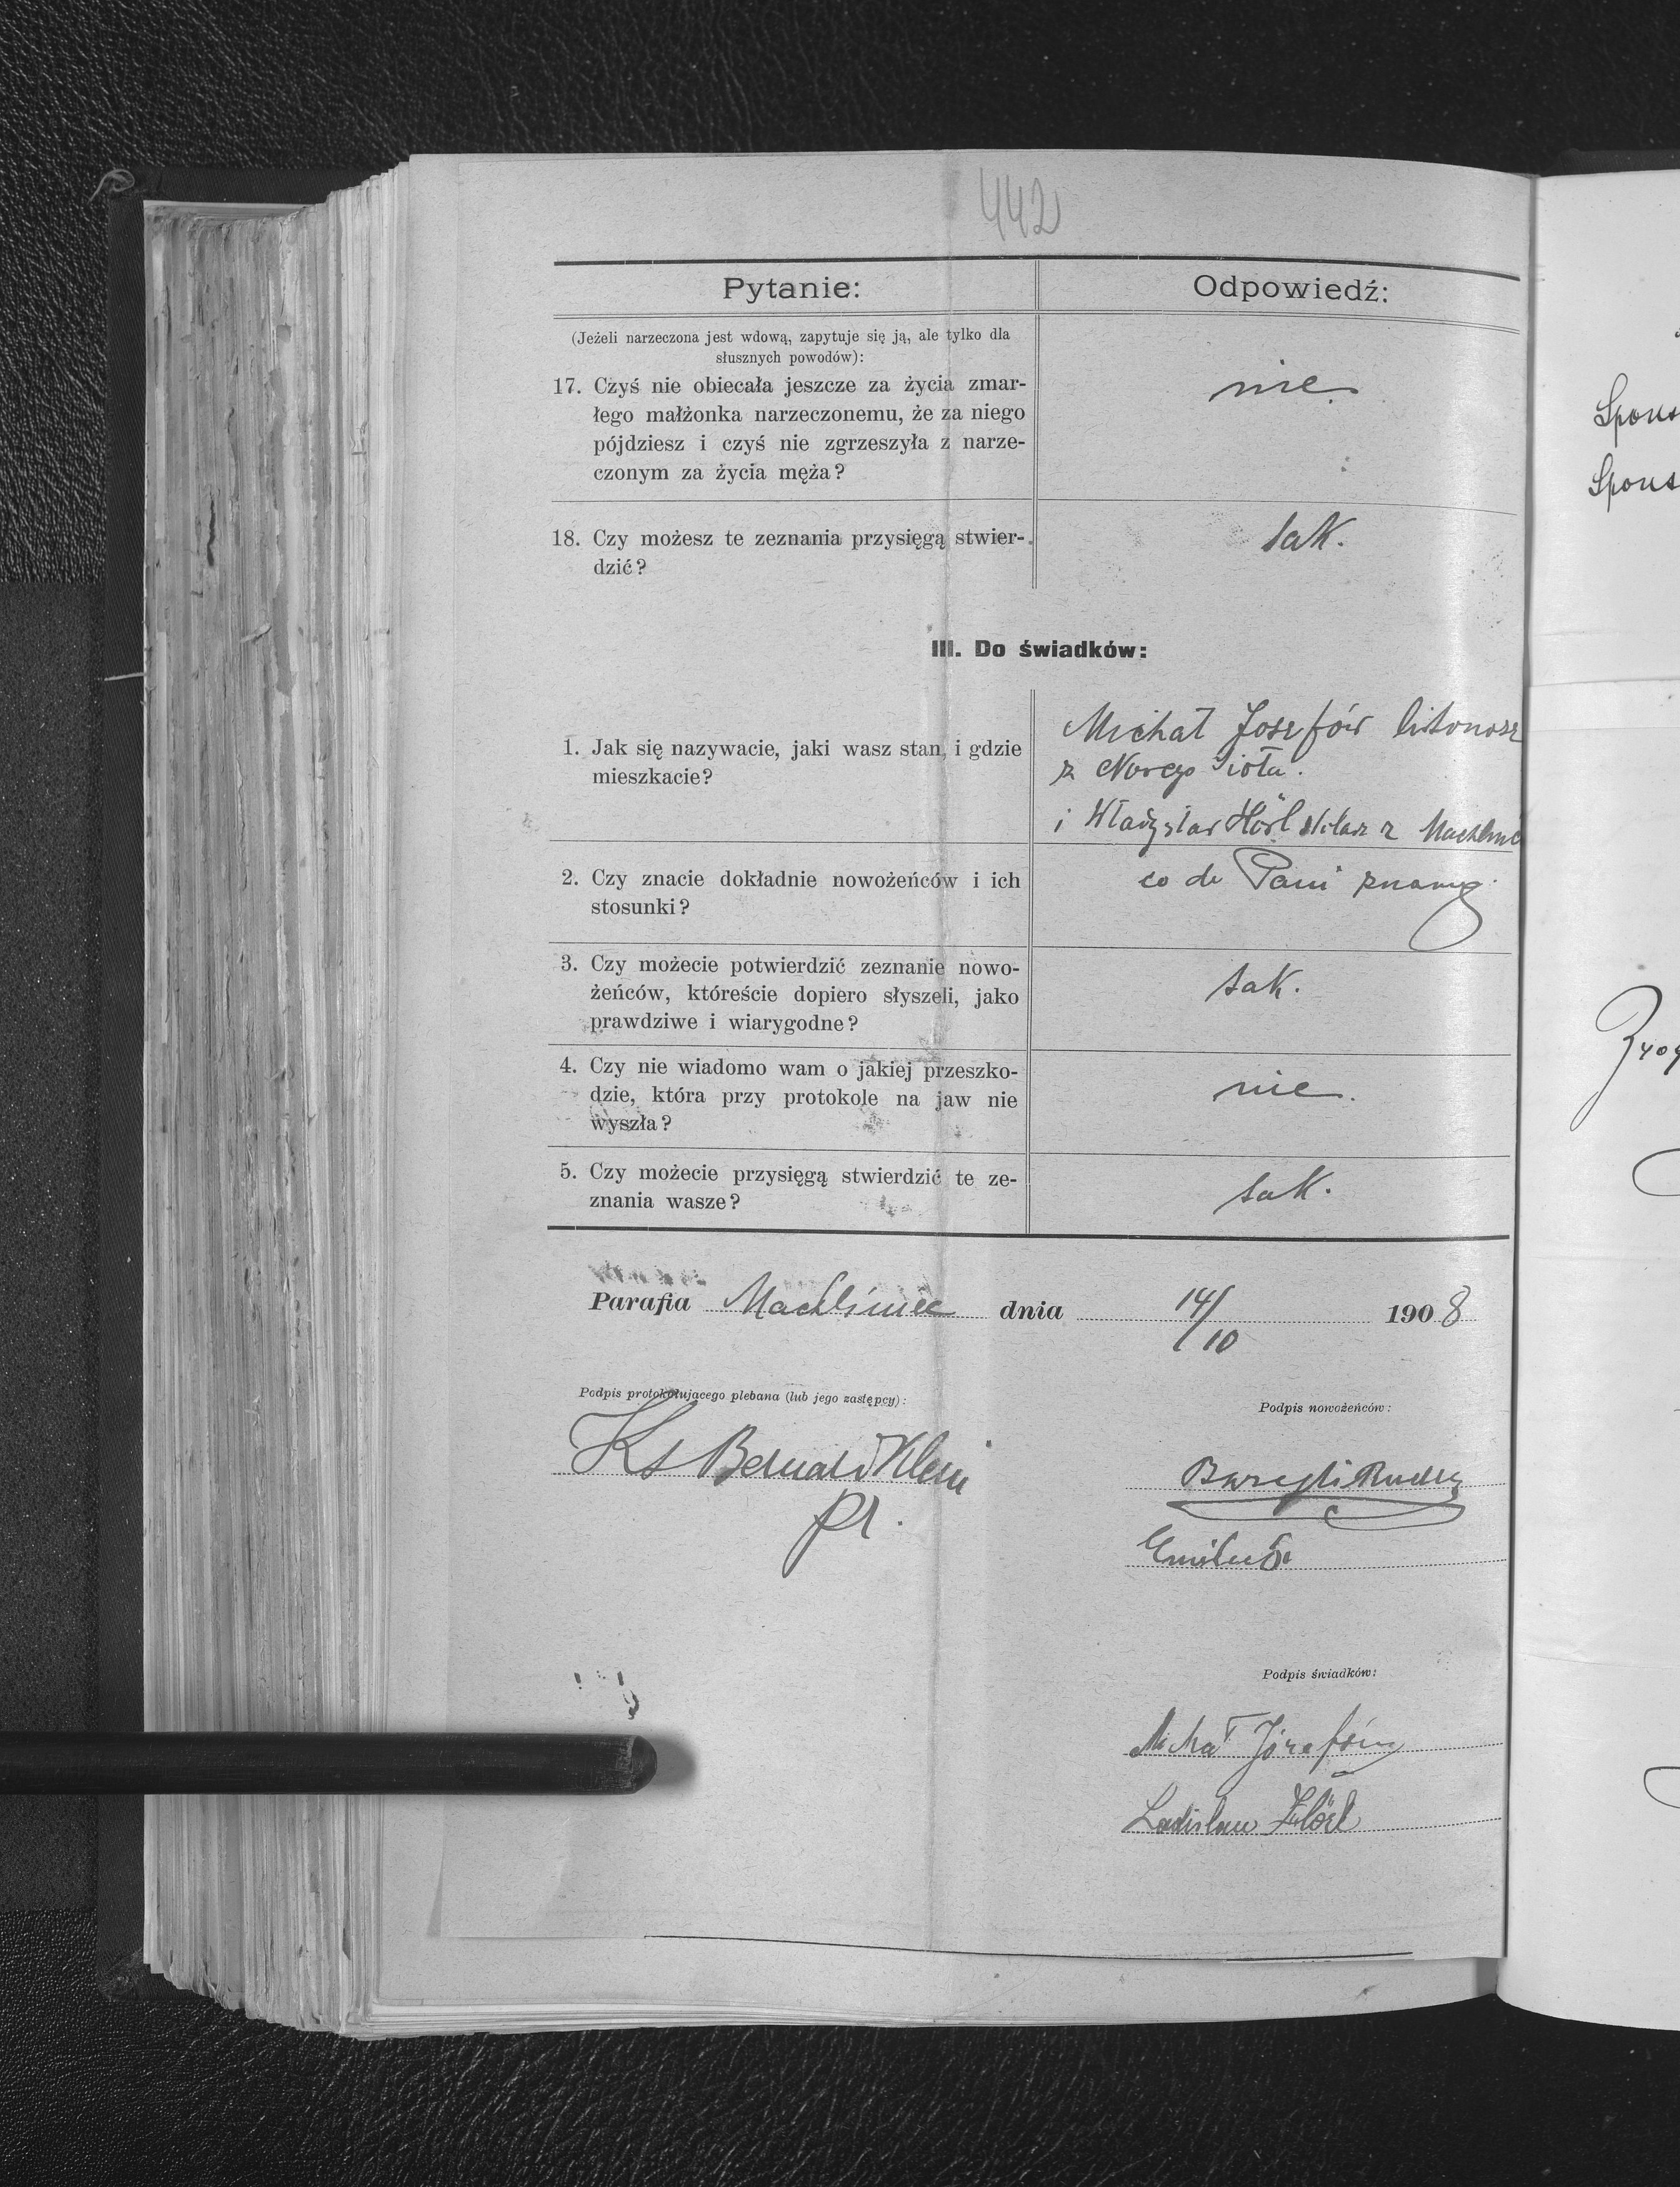 442
Pytanie: Odpowiedź:
(Jeżeli narzeczona jest wdową, zapytuje się ją, ale tylko dla
słusznych powodów):
17. Czyś nie obiecała jeszcze za życia zmar-
łego małżonka narzeczonemu, że za niego
pójdziesz i czyś nie zgrzeszyła z narze-
czonym za życia męża?
nie.
18. Czy możesz te zeznania przysięgą stwier-
dzić?
tak.
III. Do świadków:
1. Jak się nazywacie, jaki wasz stan, i gdzie
mieszkacie?
Michał Josefów listonosz
z Nowego Sioła.
i Władysław Hörl z
2. Czy znacie dokładnie nowożeńców i ich
stosunki?
co do Pani znamy.
3. Czy możecie potwierdzić zeznanie nowo-
żeńców, któreście dopiero słyszeli, jako
prawdziwe i wiarygodne?
tak.
4. Czy nie wiadomo wam o jakiej przeszko-
dzie, która przy protokole na jaw nie
wyszła?
nie.
5. Czy możecie przysięgą stwierdzić te ze-
znania wasze?
tak.
Parafia Machliniec dnia 14/10 1908
Podpis protokołującego plebana (lub jego zastępcy):
Ks Bernard Klein
pl.
Podpis nowożeńców:
Podpis świadków:
Michał Józefów
Ladislaw Hörl
Spons
Spons